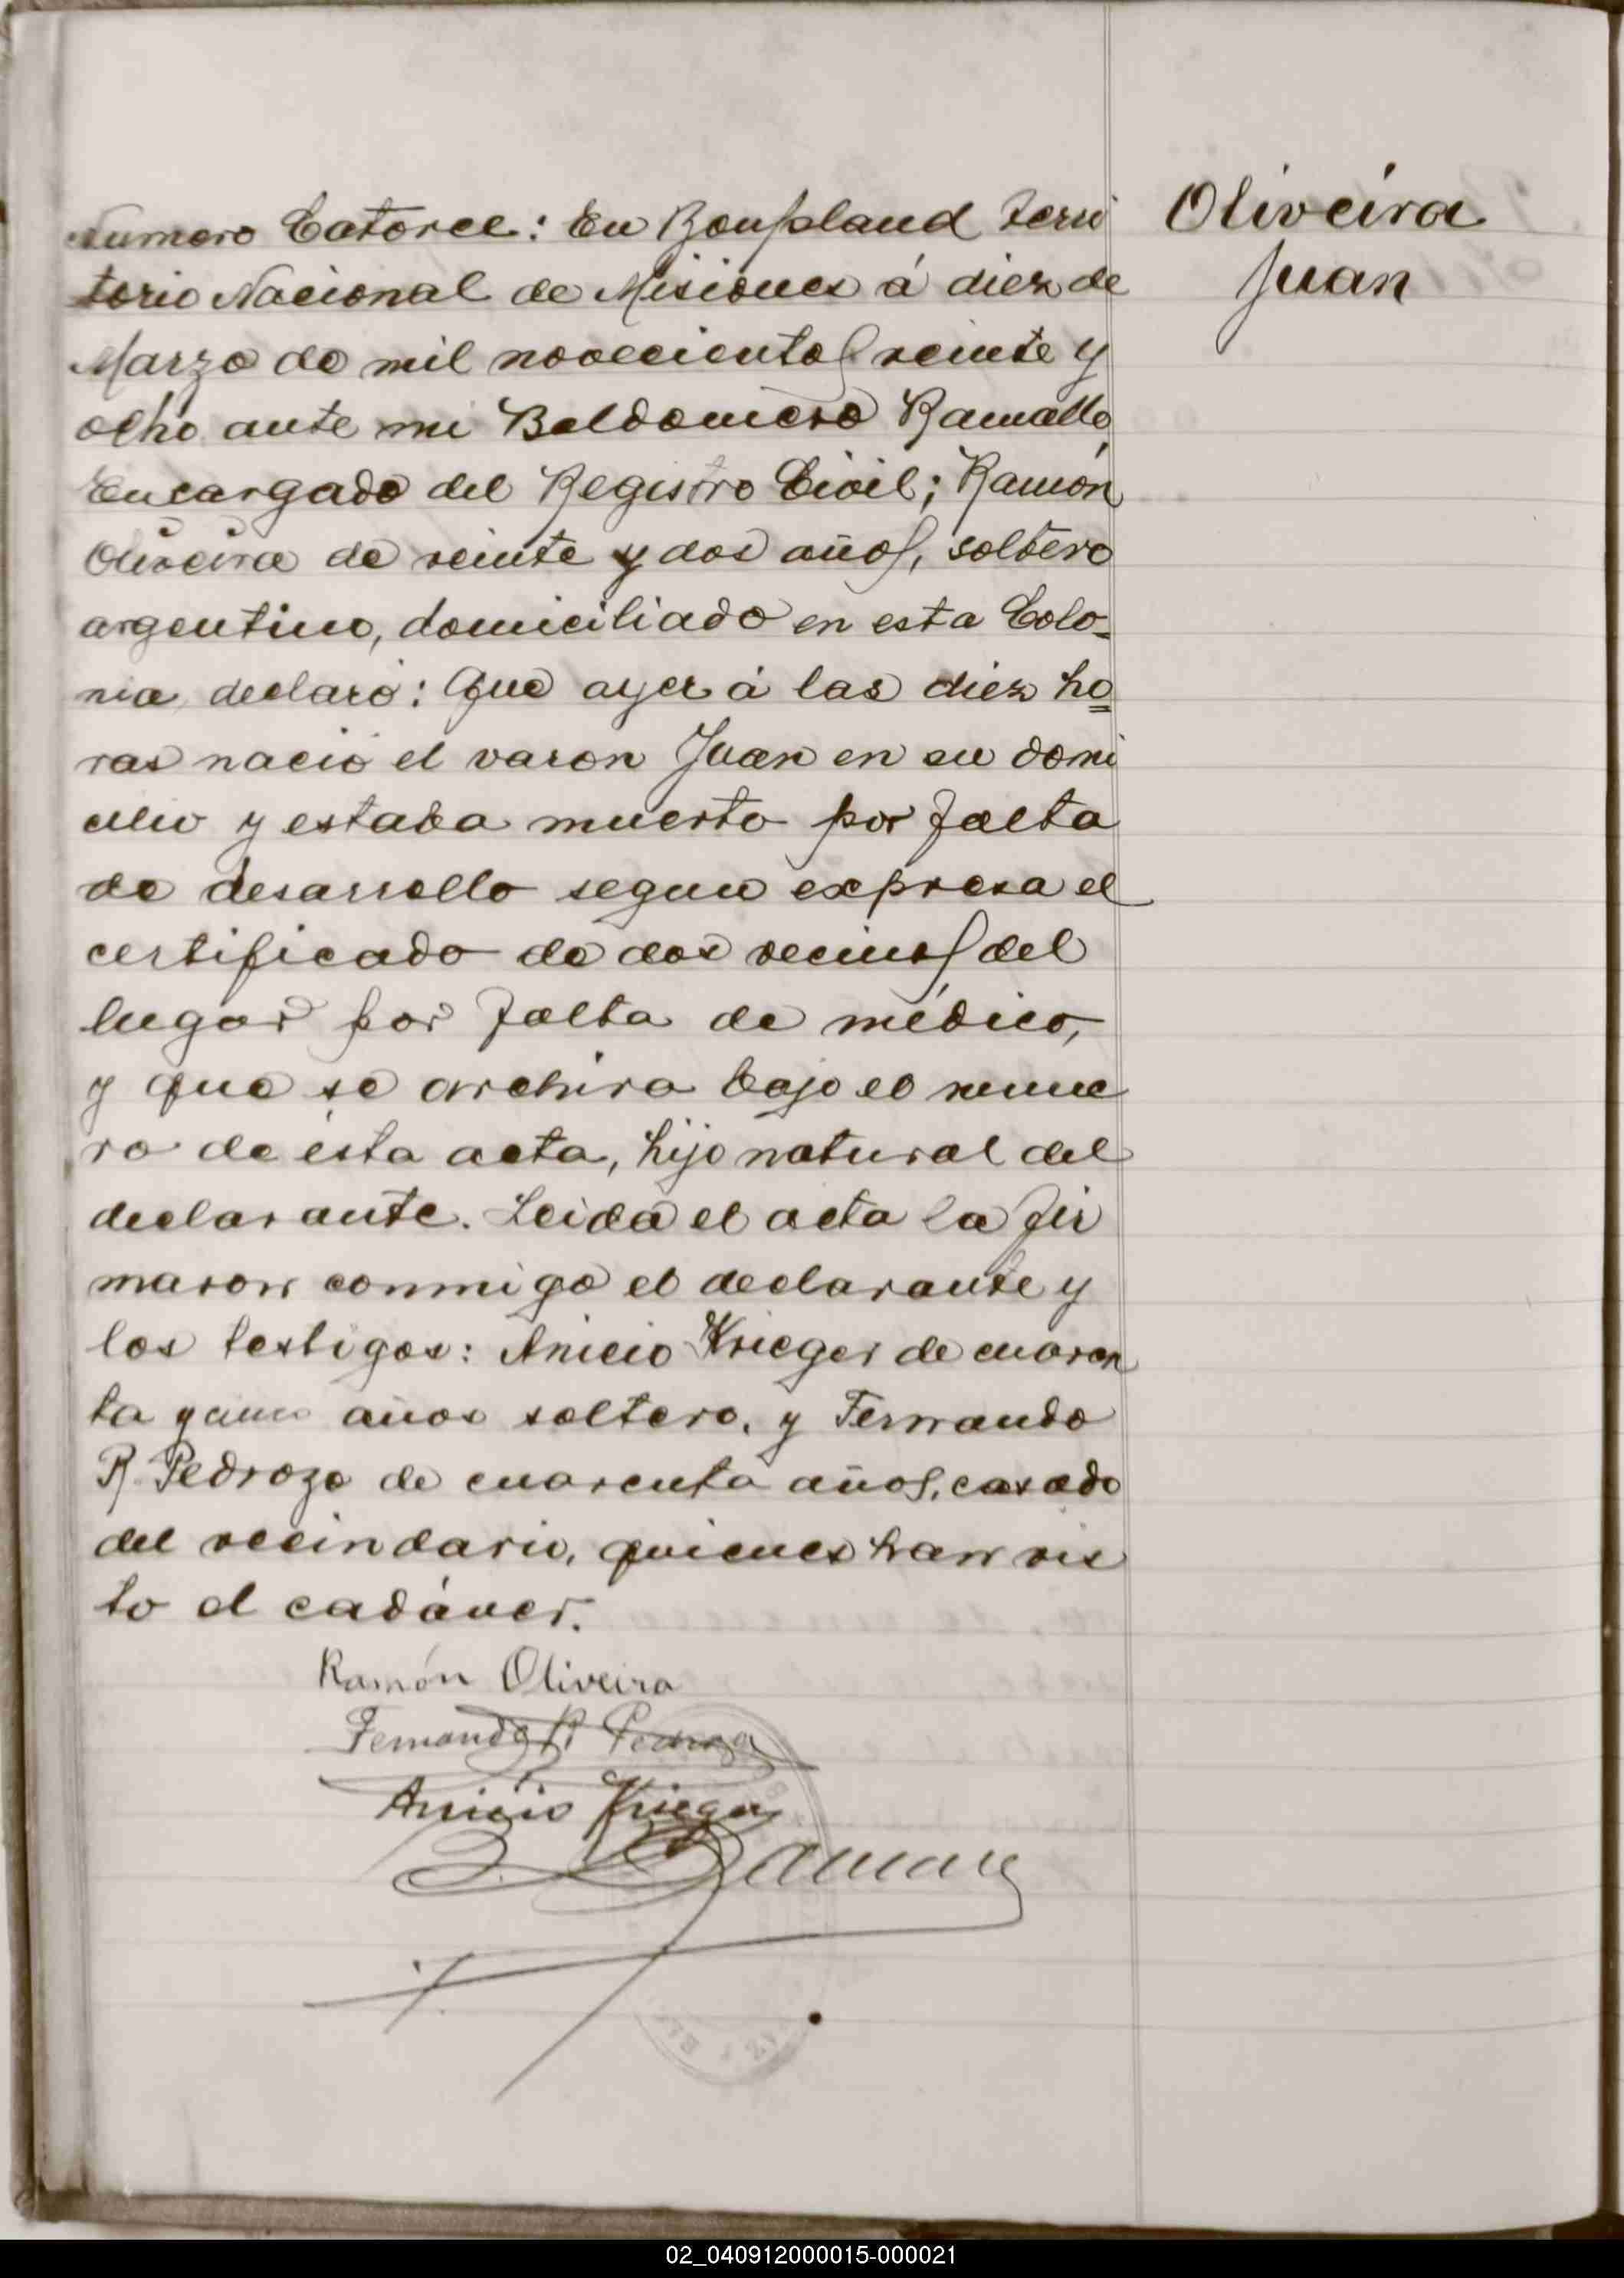 Oliveira
Juan
Numero Catorce: En Bonpland Terri
torio Nacional de Misiones á diez de
Marzo de mil novecientos veinte y
ocho ante mi Baldomero Ramallo
Encargado del Registro Civil; Ramón
Oliveira de veinte y dos años, soltero
argentino, domiciliado en esta Colo-
nia, declaró: Que ayer á las diez ho=
ras nació el varon Juan en su domi
cilio y estaba muerto por falta
de desarrollo segun expresa el
certificado de dos vecinos del
lugar por falta de médico,
y que se archiva bajo el nume
ro de ésta acta, hijo natural del
declarante. Leida el acta la fir
maron conmigo el declarante y
los testigos: Anicio Krieger de cuaren
ta y años soltero, y Fernando
R. Pedrozo de cuarenta años, casado
del vecindario, quienes han vis
to el cadáver.
Ramón Oliveira
Fernando R Pedrozo
Anicio Krieger
02_040912000015-000021